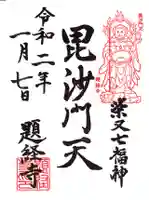 柴又七福神
毘沙門天
令和二年
一月七日
題経寺